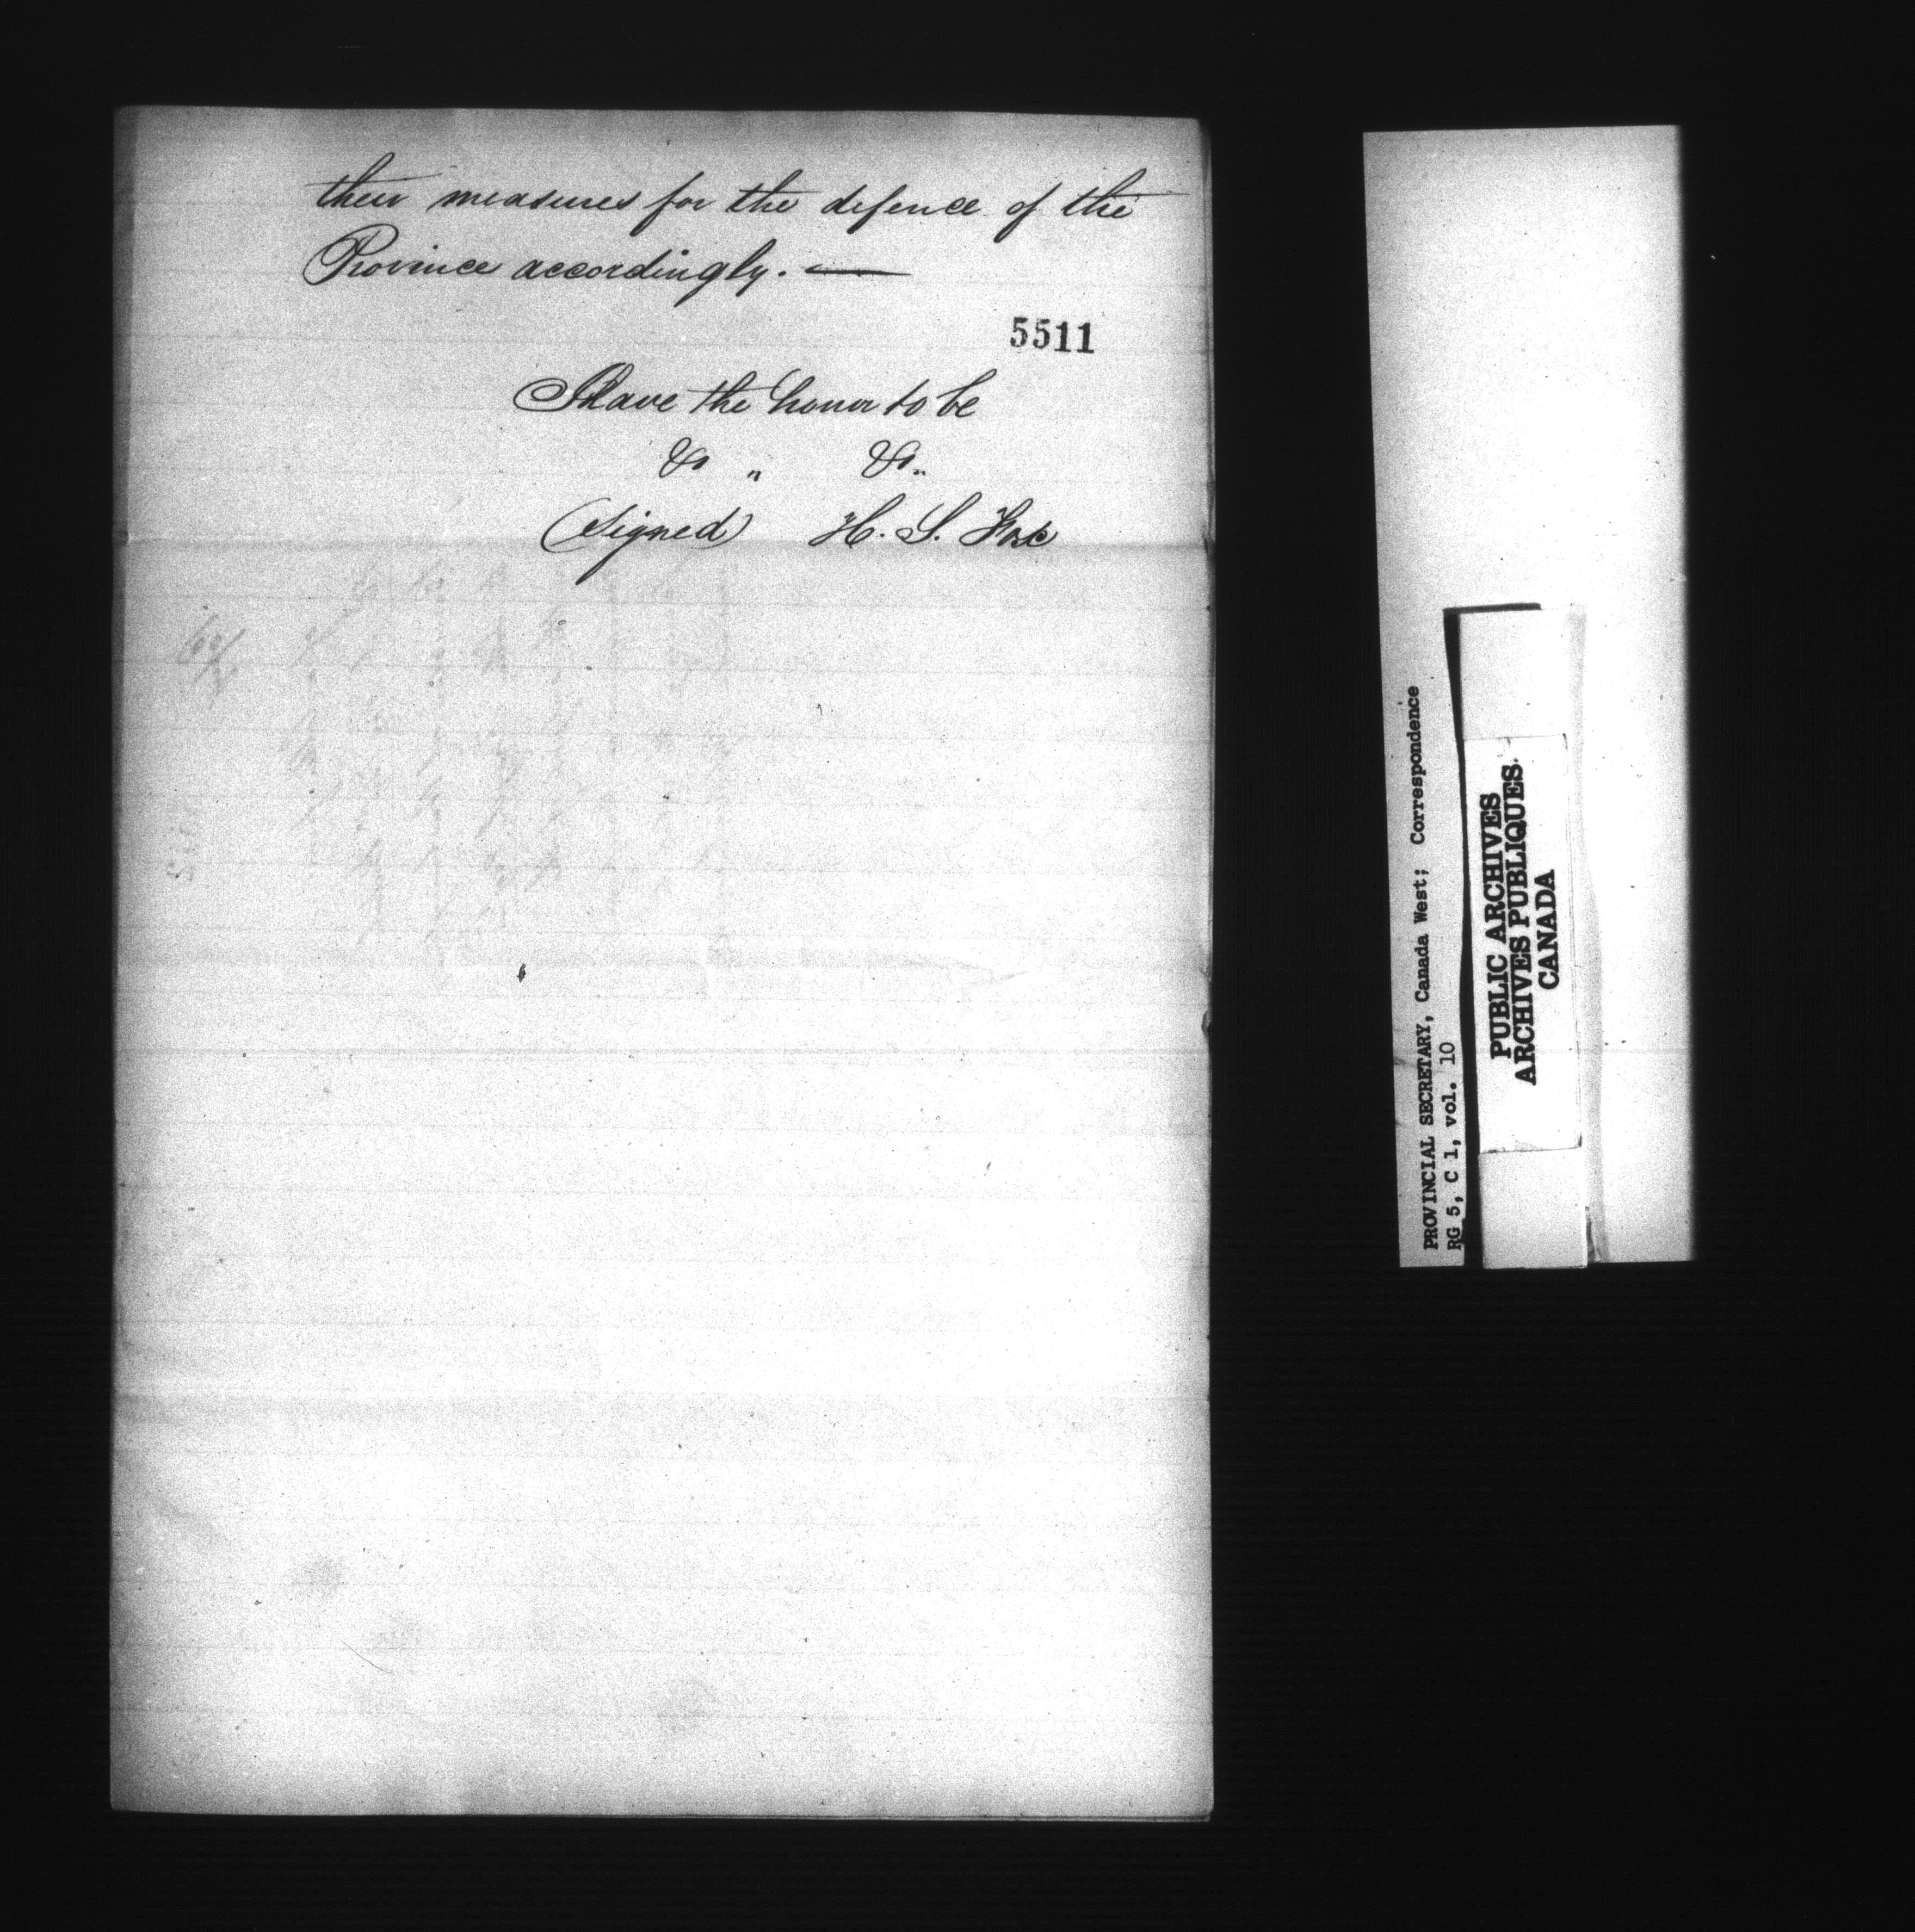 their measures for the defence of the
Province accordingly. —
5511
I have the honor to be
&c " &c "
(Signed) H. S. Fox
PROVINCIAL SECRETARY, Canada West; Correspondence
RG 5, C 1, vol. 10
PUBLIC ARCHIVES
ARCHIVES PUBLIQUES
CANADA